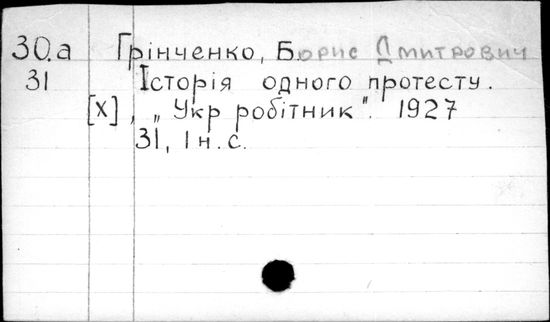 30.а Грінченко, Борис Дмитрович
31 Історія одного протесту.
[Х], „Укр робітник". 1927
31, 1 н. с.